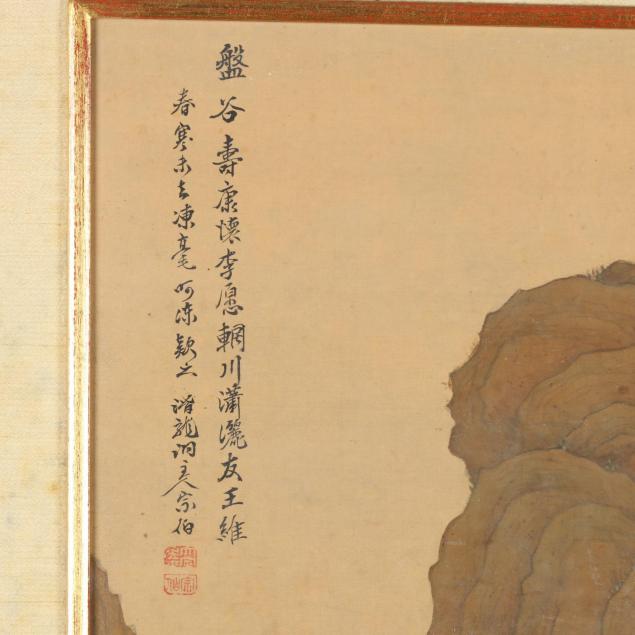 盤谷壽康懷李愿輞川瀟灑友王維
春寒未去凍毫呵凍款之潛龍洞主人宗伯